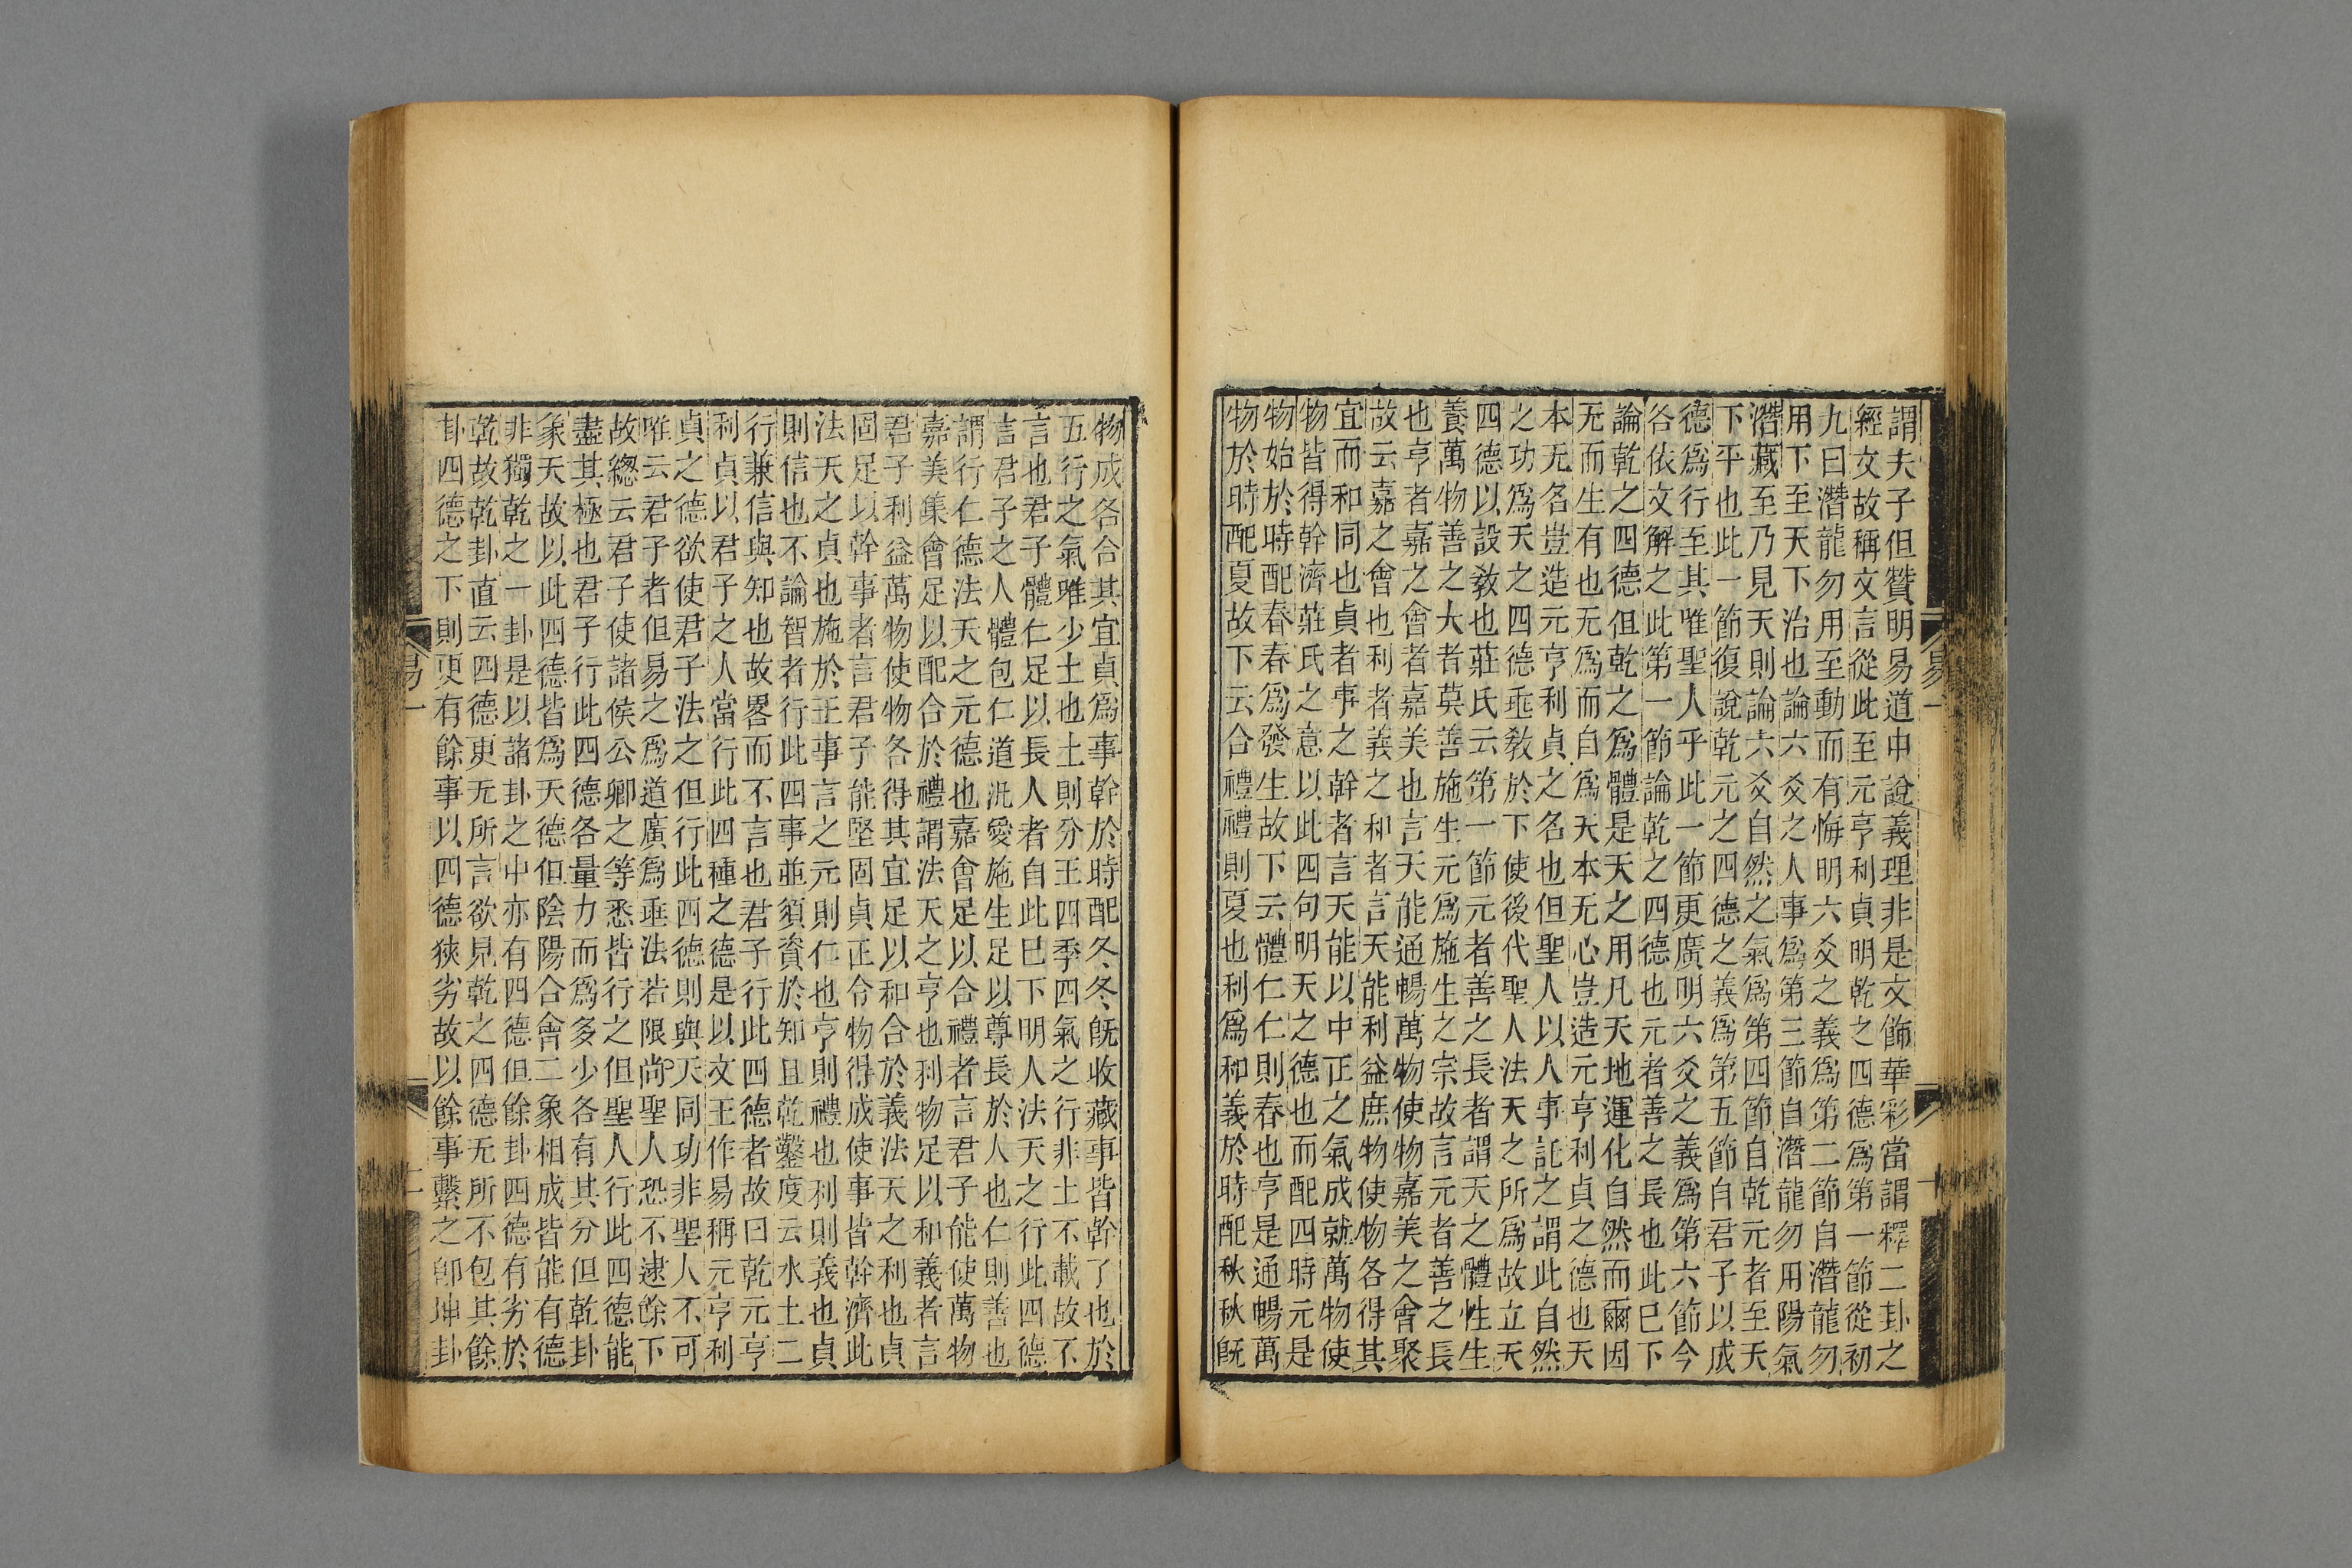 謂夫子但贊明易道申說義理非是文飾華彩當謂釋二卦之
經文故稱文言從此至元亨利貞明乾之四德爲第一節從初
九曰潛龍勿用至動而有悔明六爻之義爲第二節自潛龍勿
用下至天下治也論六爻之人事爲第三節自潛龍勿用陽氣
潛藏至乃見天則論六爻自然之氣爲第四節自乾元者至天
下平也此一節復說乾元之四德之義爲第五節自君子以成
德爲行至其唯聖人乎此一節更廣明六爻之義爲第六節今
各依文解之此第一節論乾之四德也元者善之長也此已下
論乾之四德但乾之爲體是天之用凡天地運化自然而爾因
无而生有也无爲而自爲天本无心豈造元亨利貞之德也天
本无名豈造元亨利貞之名也但聖人以人事託之謂此自然
之功爲天之四德垂敎於下使後代聖人法天之所爲故立天
四德以設敎也莊氏云第一節元者善之長者謂天之體性生
養萬物善之大者莫善施生元爲施生之宗故言元者善之長
也亨者嘉之會者嘉美也言天能通暢萬物使物嘉美之會聚
故云嘉之會也利者義之和者言天能利益庶物使物各得其
宜而和同也貞者事之幹者言天能以中正之氣成就萬物使
物皆得幹濟莊氏之意以此四句明天之德也而配四時元是
物始於時配春春爲發生故下云體仁仁則春也亨是通暢萬
物於時配夏故下云合禮禮則夏也利爲和義於時配秋秋旣
物成各合其宜貞爲事幹於時配冬冬旣收藏事皆幹了也於
五行之氣唯少土也土則分王四季四氣之行非土不載故不
言也君子體仁足以長人者自此已下明人法天之行此四德
言君子之人體包仁道汎愛施生足以尊長於人也仁則善也
謂行仁德法天之元德也嘉會足以合禮者言君子能使萬物
嘉美集會足以配合於禮謂法天之亨也利物足以和義者言
君子利益萬物使物各得其宜足以和合於義法天之利也貞
固足以幹事者言君子能堅固貞正令物得成使事皆幹濟此
法天之貞也施於王事言之元則仁也亨則禮也利則義也貞
則信也不論智者行此四事並須資於知且乾鑿度云水土二
行兼信與知也故畧而不言也君子行此四德者故曰乾元亨
利貞以君子之人當行此四種之德是以文王作易稱元亨利
貞之德欲使君子法之但行此四德則與天同功非聖人不可
唯云君子者但易之爲道廣爲垂法若限尚聖人恐不逮餘下
故總云君子使諸侯公卿之等悉皆行之但聖人行此四德能
盡其極也君子行此四德各量力而爲多少各有其分但乾卦
象天故以此四德皆爲天德但陰陽合會二象相成皆能有德
非獨乾之一卦是以諸卦之中亦有四德但餘卦四德有劣於
乾故乾卦直云四德更无所言欲見乾之四德无所不包其餘
卦四德之下則更有餘事以四德狹劣故以餘事繫之卽坤卦
易一
十一